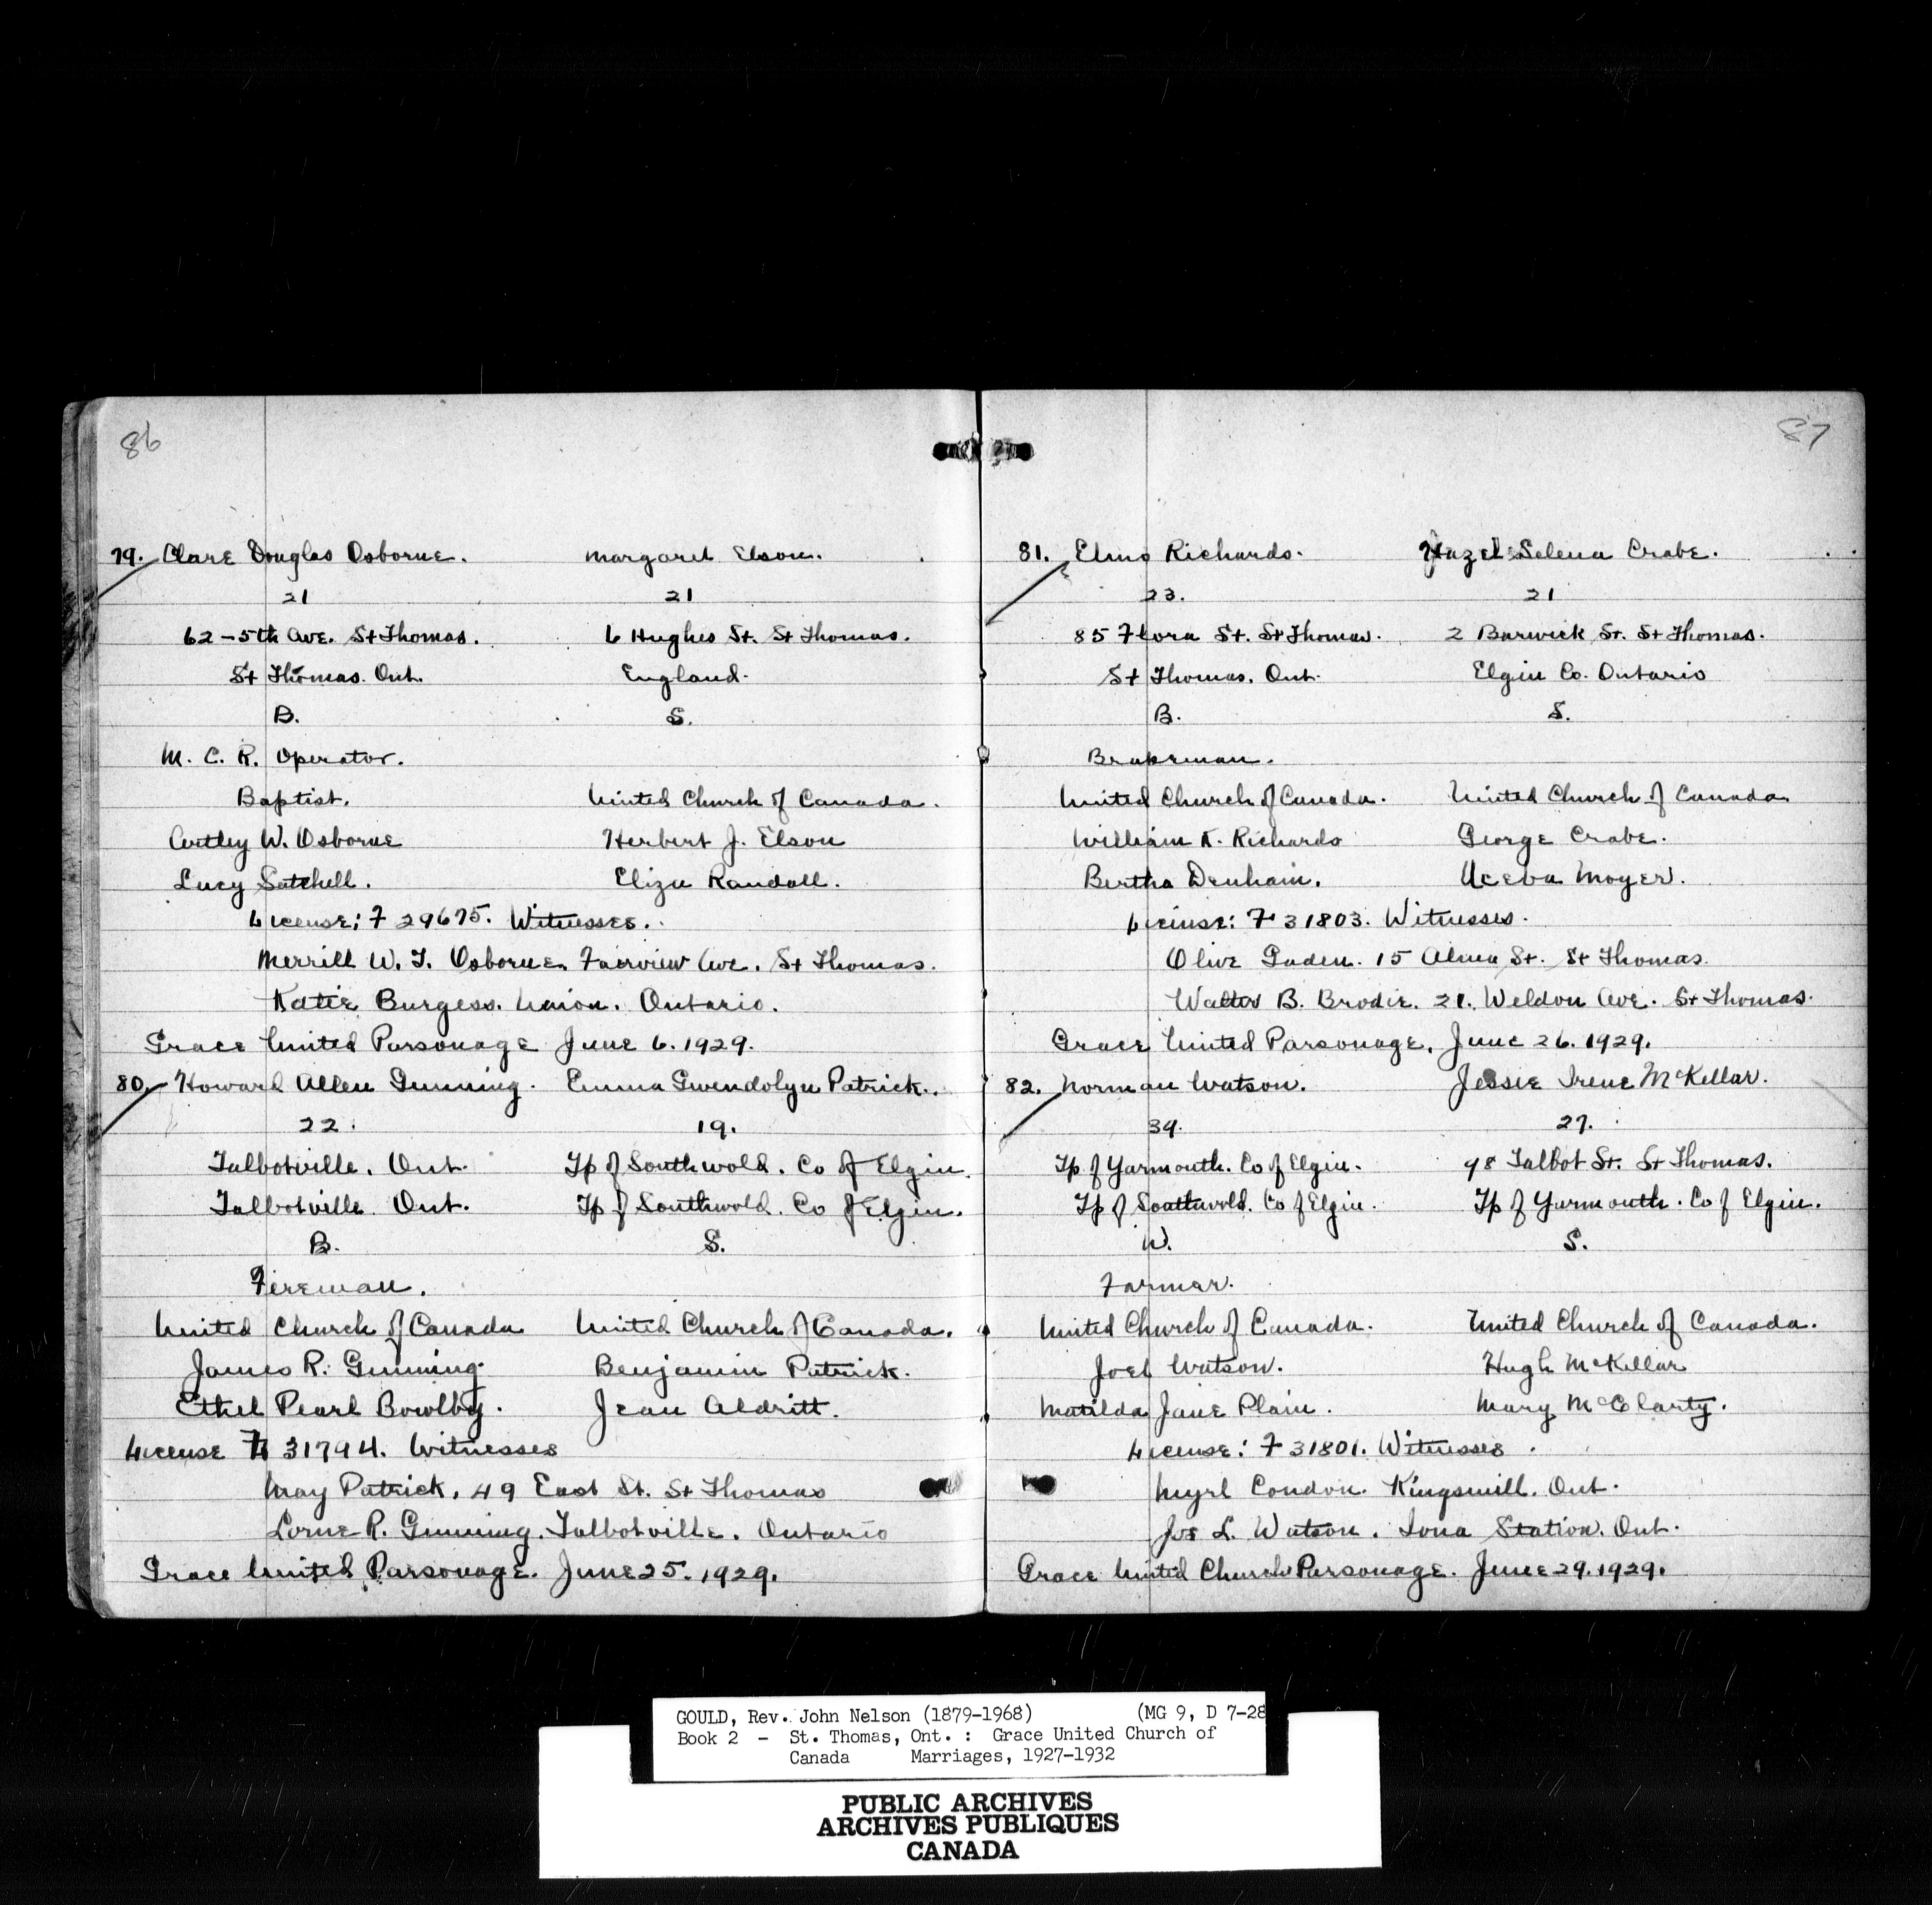 86
79. Clare Douglas Osborne. Margaret Elson.
21 21
62-5th Ave. St Thomas. 6 Hughes St. St Thomas.
St Thomas. Ont. England.
B. S.
M. C. R. Operator.
Baptist. United Church of Canada.
W. Osborne Herbert J. Elson
Lucy Satchell. Eliza Randall.
License: F 29675. Witnesses.
Merrill W. T. Osborne. Fairview Ave. St Thomas.
Katie Burgess. Union. Ontario.
Grace United Parsonage June 6. 1929.
80. Howard Allen Gunning. Emma Gwendolyn Patrick.
22. 19.
Talbotville. Ont. Tp of Southwold. Co of Elgin.
Talbotville Ont. Tp of Southwold. Co of Elgin.
B. S.
Fireman.
United Church of Canada United Church of Canada.
James R. Gunning. Benjamin Patrick.
Ethel Pearl Bowlby. Jean Aldritt.
License F 31794. Witnesses
May Patrick, 49 East St. St Thomas
Lorne R. Gunning. Talbotville. Ontario
Grace United Parsonage. June 25. 1929.
87
81. Elmo Richards. Hazel Selena Crabe.
23. 21
85 Flora St. St Thomas. 2 Barwick St. St Thomas.
St Thomas. Ont. Elgin Co. Ontario
B. S.
Brakeman.
United Church of Canada. United Church of Canada.
William K. Richards George Crabe.
Bertha Denham. Moyer.
License: F 31803. Witnesses.
Olive Gaden. 15 Alma St. St Thomas.
Walter B. Brodie. 21. Weldon Ave. St Thomas.
Grace United Parsonage. June 26. 1929.
82. Norman Watson. Jessie Irene McKellar.
39. 27.
Tp of Yarmouth. Co of Elgin. 98 Talbot St. St Thomas.
Tp of Southwold. Co of Elgin. Tp of Yarmouth. Co of Elgin.
W. S.
Farmer.
United Church of Canada. United Church of Canada.
Joel Watson. Hugh McKellar
Matilda Jane Plain. Mary McClarty.
License: F 31801. Witnesses.
Myrl Condon. Kingsmill. Ont.
Jos L. Watson. Iona Station. Ont.
Grace United Church Parsonage. June 29. 1929.
GOULD, Rev. John Nelson (1879-1968) (MG 9, D 7-28
Book 2 - St. Thomas, Ont. : Grace United Church of
Canada Marriages, 1927-1932
PUBLIC ARCHIVES
ARCHIVES PUBLIQUES
CANADA